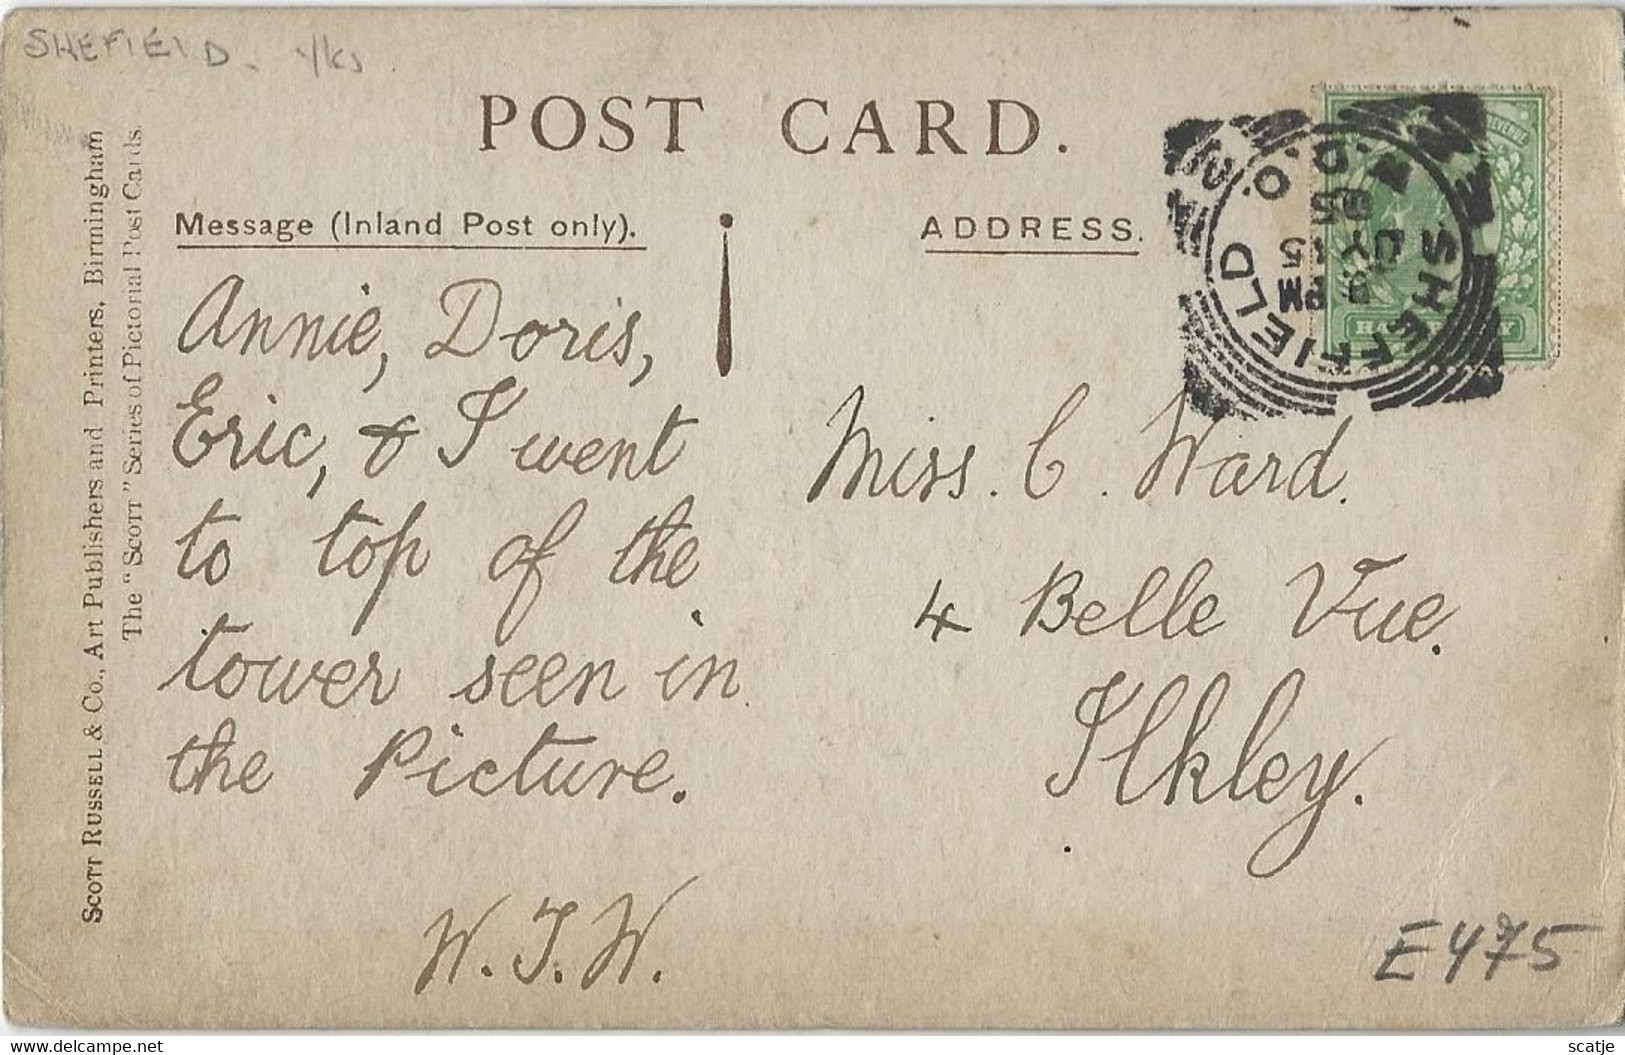 SHEFIELD. Yks.
POST CARD.
Message (Inland Post only).
ADDRESS.
SCOTT RUSSELL & Co., Art Publishers and Printers, Birmingham
The "SCOTT" Series of Pictorial Post Cards.
Annie, Doris,
Eric, & I went
to top of the
tower seen in
the Picture.
W.J.W.
Miss. C. Ward.
4 Belle Vue.
Ilkley.
SHEFFIELD
PM
JY 15
05
REVENUE
E475
delcampe.net
scatje